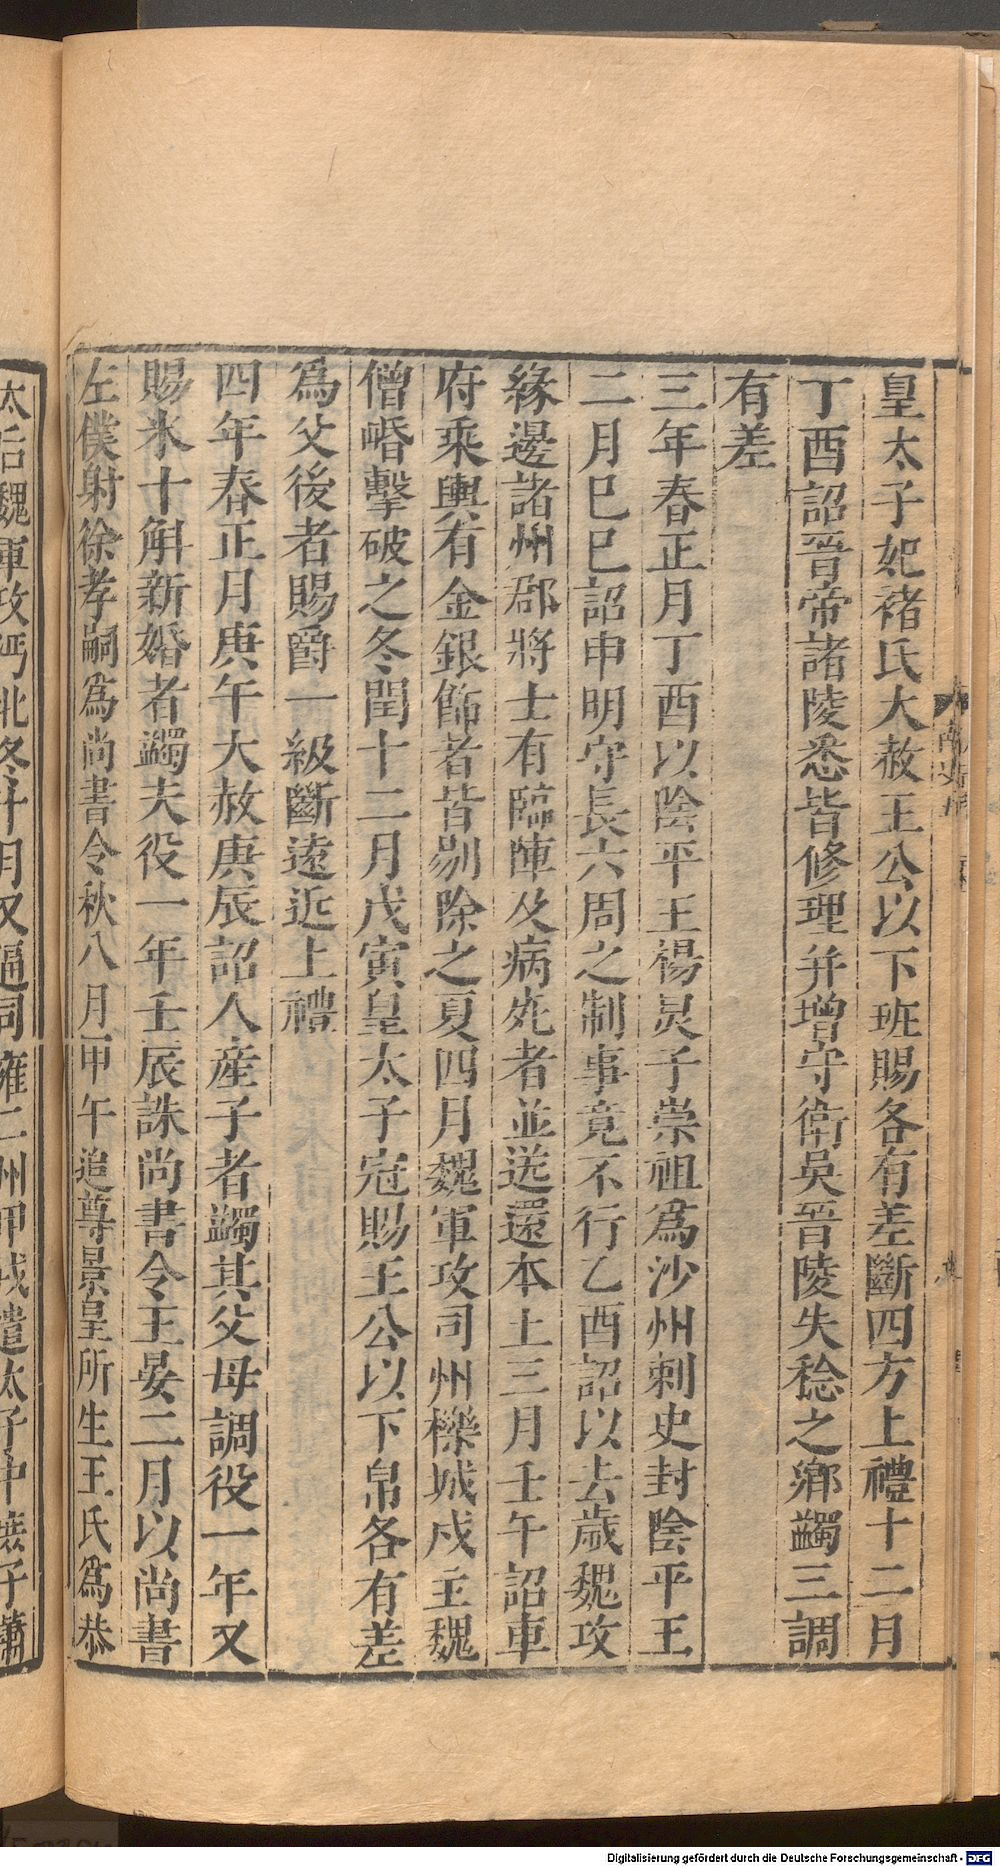 皇太子妃褚氏大赦王公以下班賜各有差斷四方上禮十二月
丁酉詔晉帝諸陵悉皆修理并增守衛吳晉陵失稔之鄉蠲三調
有差
三年春正月丁酉以陰平王楊炅子崇祖爲沙州刺史封陰平王
二月巳巳詔申明守長六周之制事竟不行乙酉詔以去歲魏攻
緣邊諸州郡將士有臨陣及病死者並送還本土三月壬午詔車
府乘輿有金銀飾者皆剔除之夏四月魏軍攻司州櫟城戍主魏
僧㟭擊破之冬閏十二月戊寅皇太子冠賜王公以下帛各有差
爲父後者賜爵一級斷遠近上禮
四年春正月庚午大赦庚辰詔人産子者蠲其父母調役一年又
賜米十斛新婚者蠲夫役一年壬辰誅尚書令王晏二月以尚書
左僕射徐孝嗣爲尚書令秋八月甲午追尊景皇所生王氏爲恭
太后魏軍攻沔北冬十月又逼司雍二州甲戌遣太子中庶子蕭
Digitalisierung gefördert durch die Deutsche Forschungsgemeinschaft - DFG